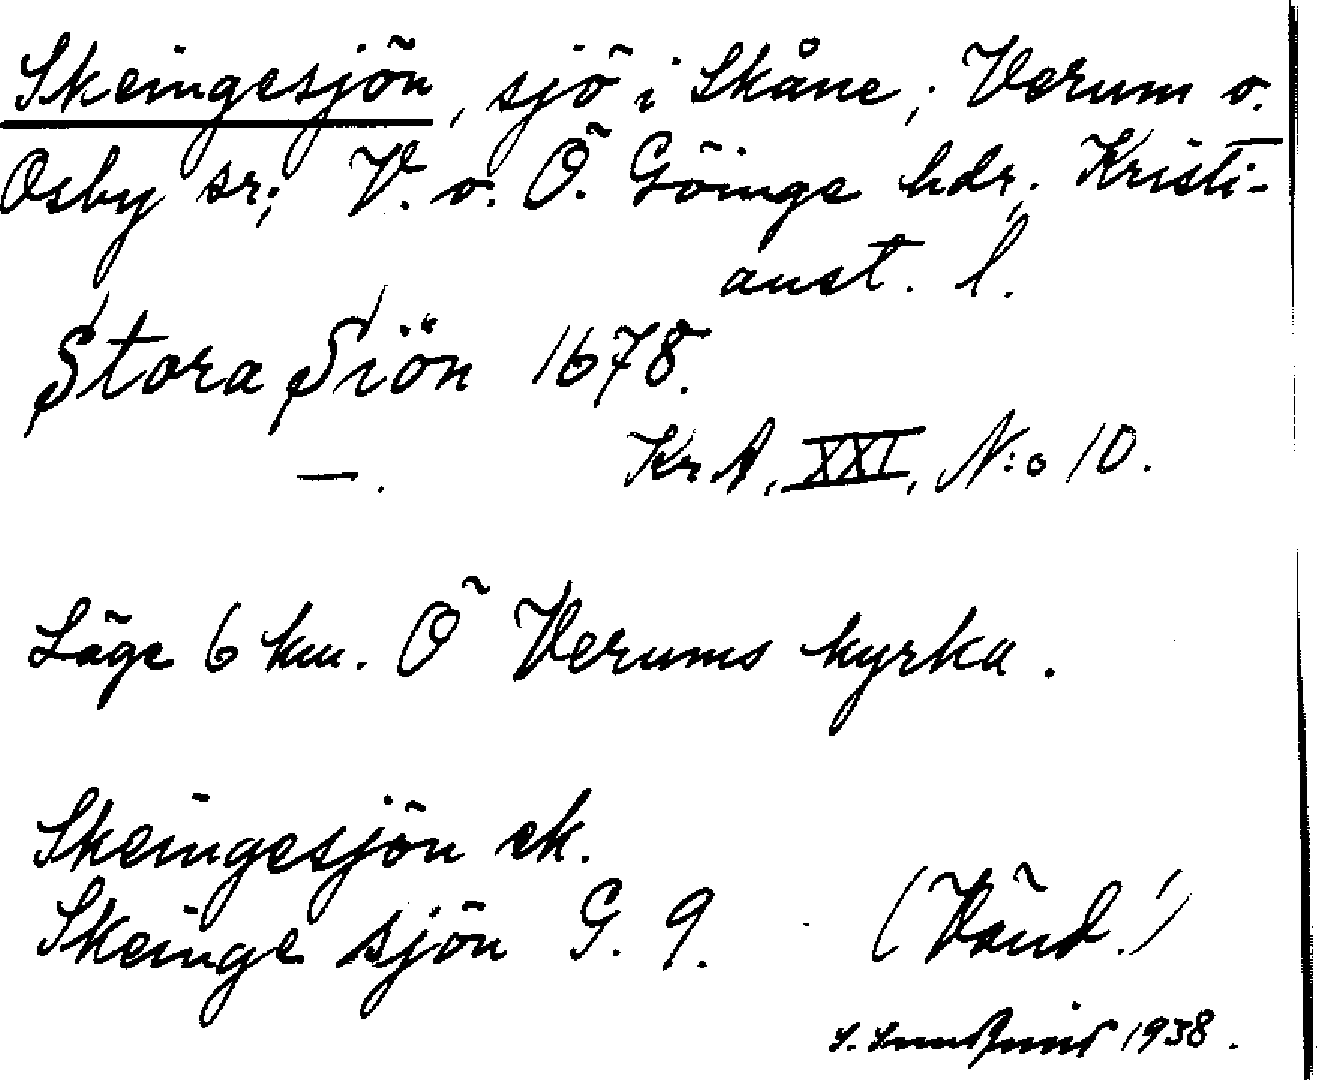 Skeingesjön, sjö i Skåne; Verum o.
Osby sr; V. o. Ö. Göinge hdr. Kristi-
anst. l.
Stora Siön 1678.
—. Kr. A, XXI, N:o 10.
Läge 6 km. Ö Verums kyrka.
Skeingesjön ek.
Skeinge sjön G. 9.
(Vänd!)
1938.